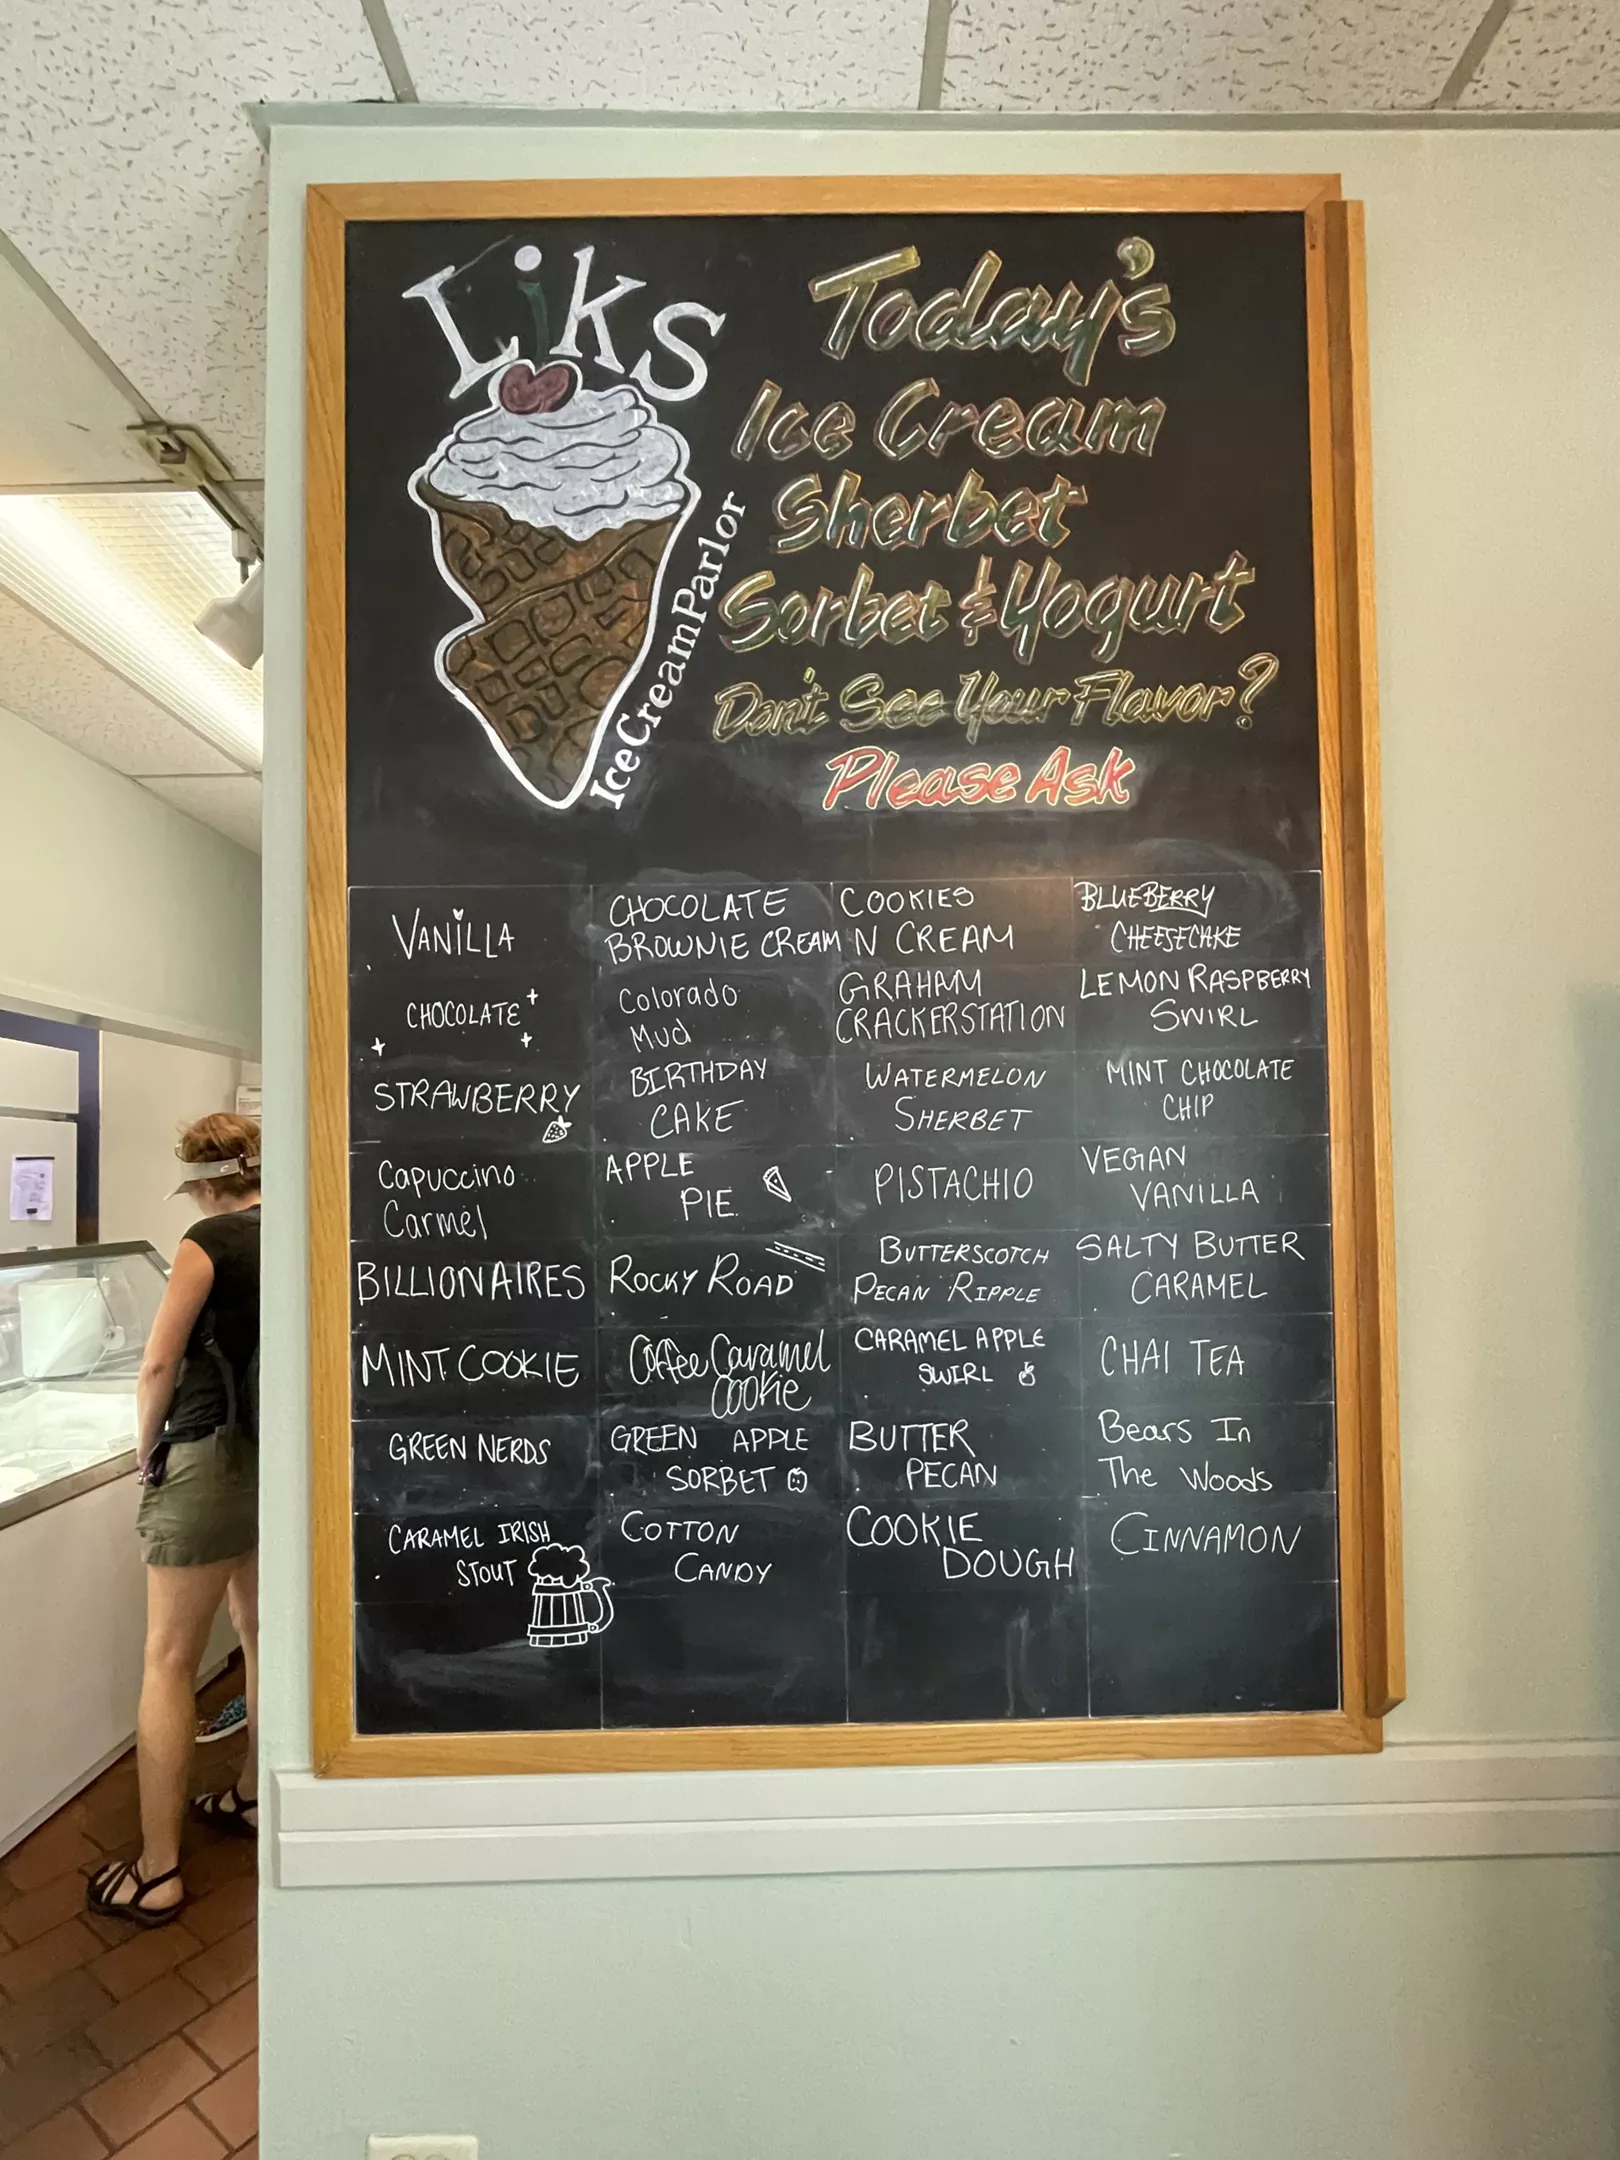 Liks
Ice Cream Parlor
Today's
Ice Cream
Sherbet
Sorbet & Yogurt
Don't See Your Flavor?
Please Ask
VANILLA
CHOCOLATE
STRAWBERRY
Capuccino
Carmel
BILLIONAIRES
MINT COOKIE
GREEN NERDS
CARAMEL IRISH
STOUT
CHOCOLATE
BROWNIE CREAM
Colorado
Mud
BIRTHDAY
CAKE
APPLE
PIE
ROCKY ROAD
Coffee Caramel
Cookie
GREEN APPLE
SORBET
COTTON
CANDY
COOKIES
N CREAM
GRAHAM
CRACKERSTATION
WATERMELON
SHERBET
PISTACHIO
BUTTERSCOTCH
PECAN RIPPLE
CARAMEL APPLE
SWIRL
BUTTER
PECAN
COOKIE
DOUGH
BLUEBERRY
CHEESECAKE
LEMON RASPBERRY
SWIRL
MINT CHOCOLATE
CHIP
VEGAN
VANILLA
SALTY BUTTER
CARAMEL
CHAI TEA
Bears In
The Woods
CINNAMON